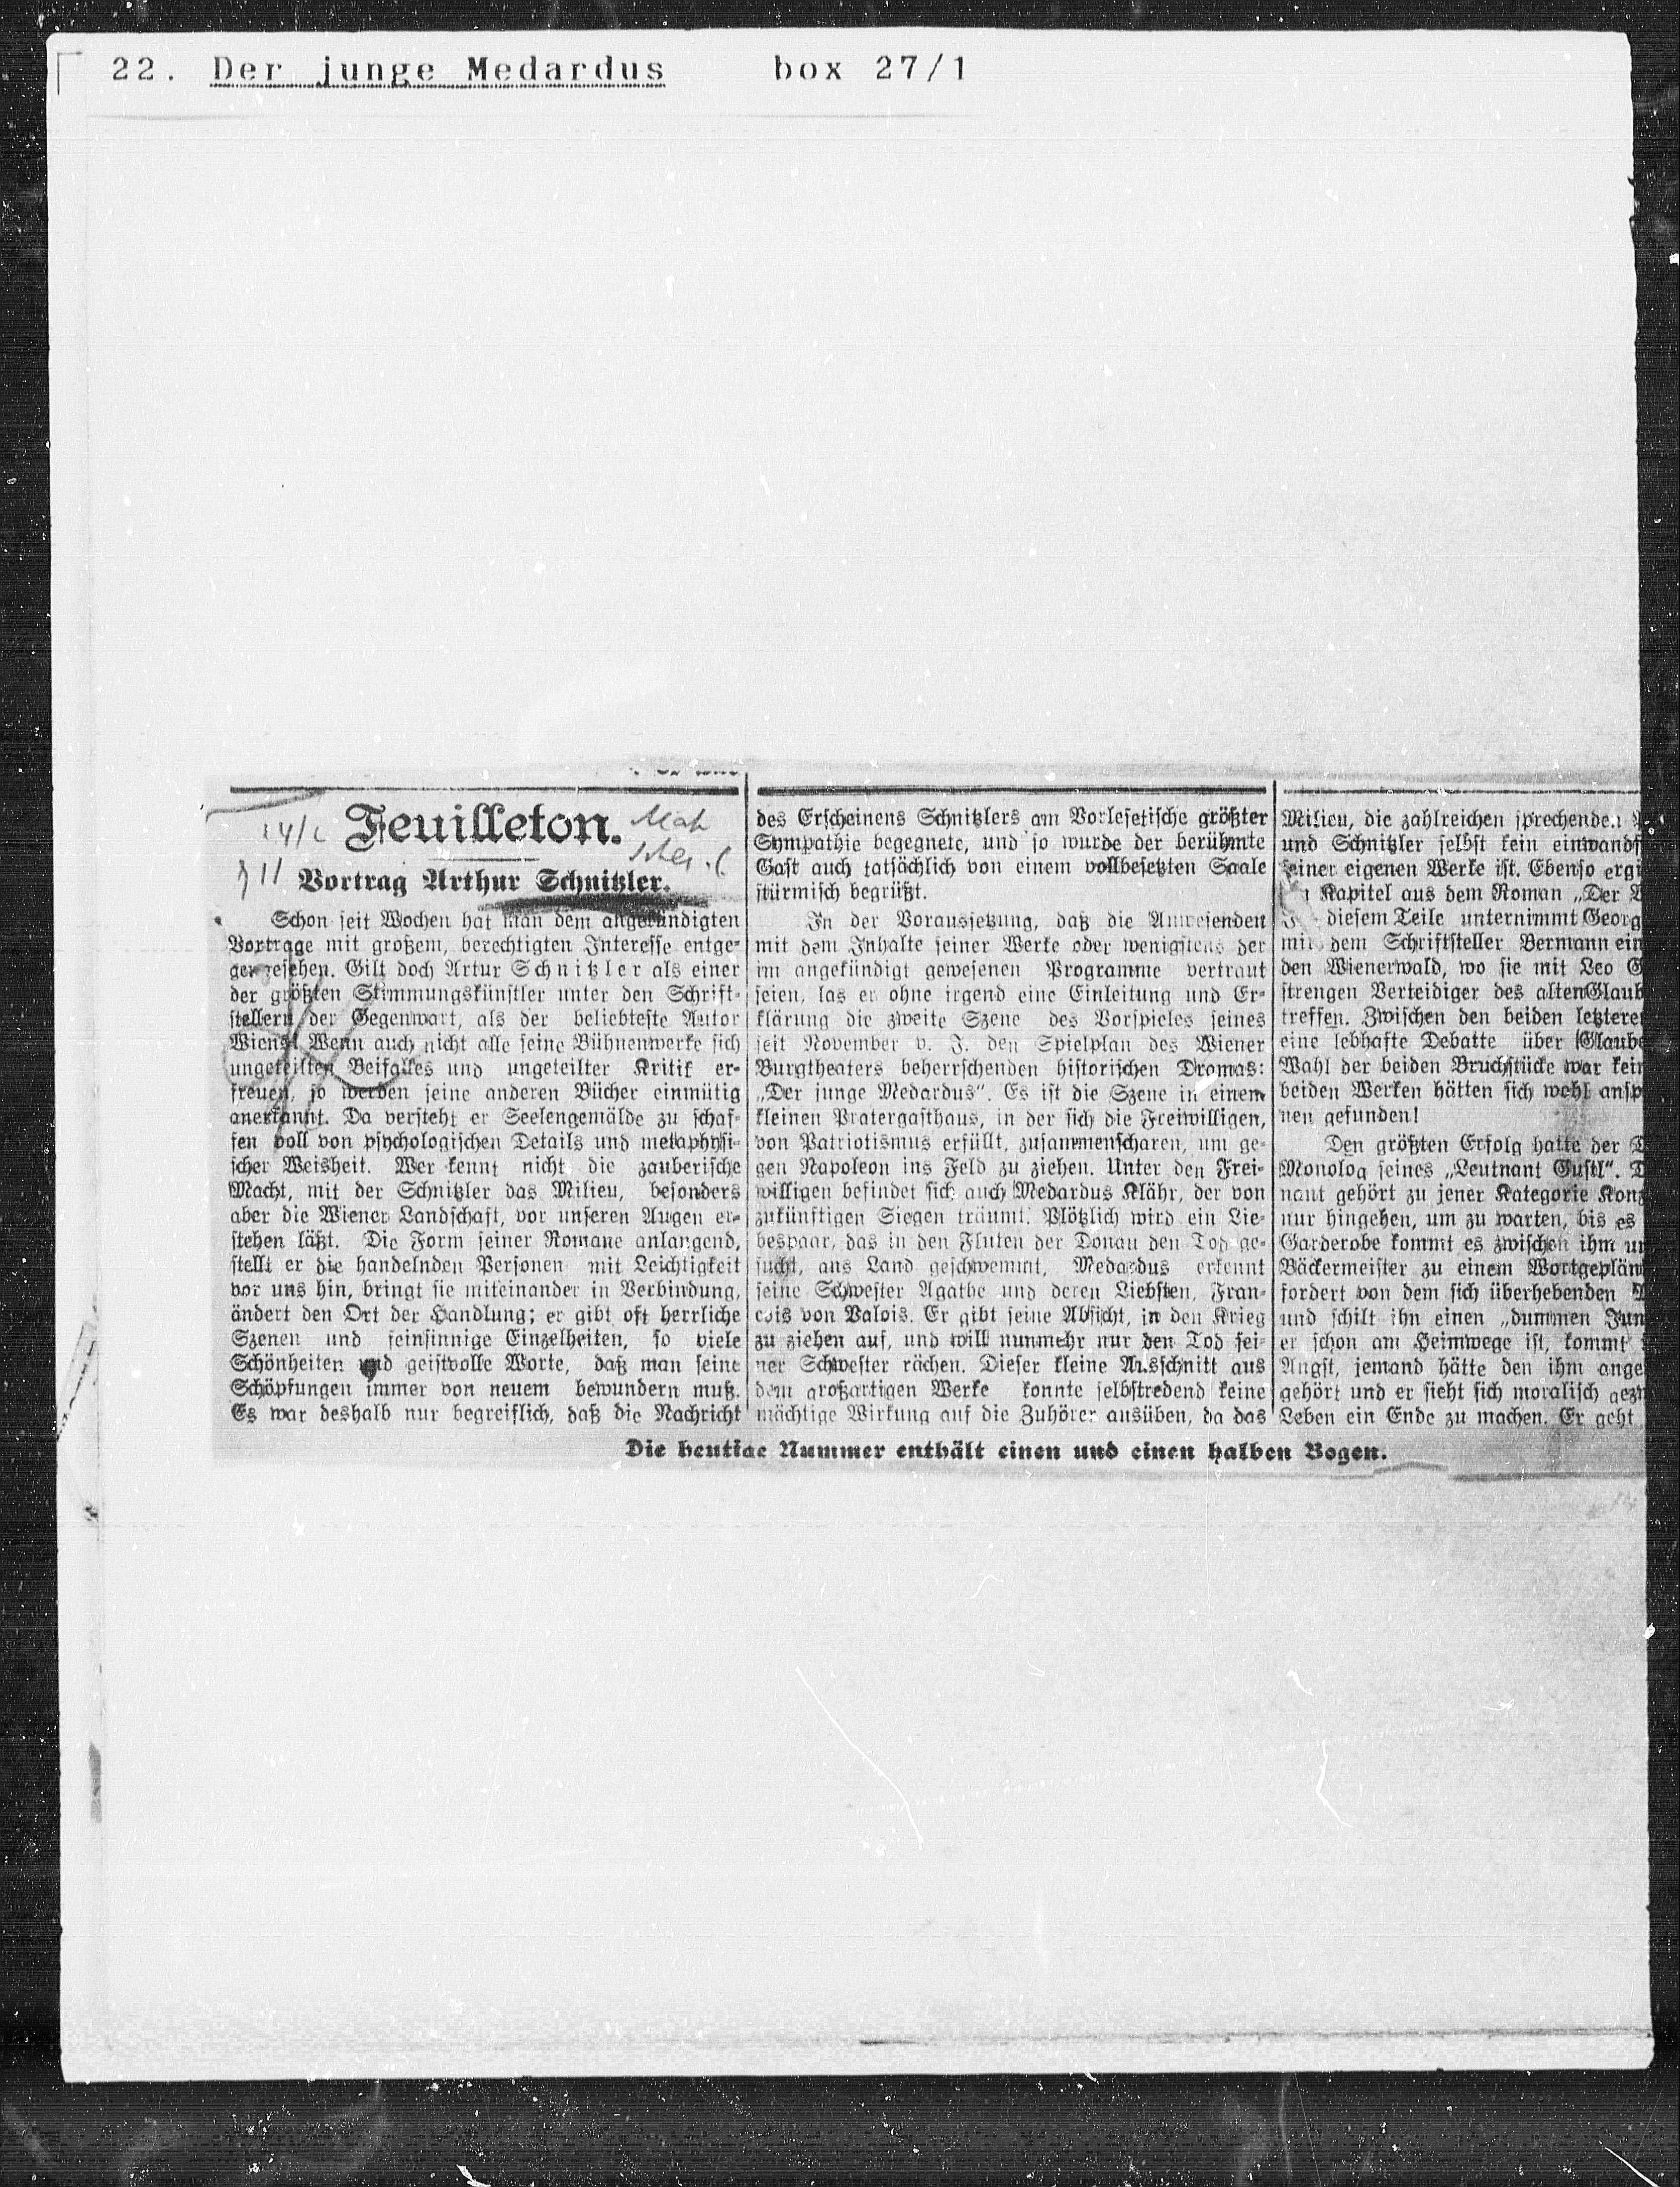 22. Der junge Medardus box 27/1
Feuilleton.
Vortrag Arthur Schnitzler.
Schon seit Wochen hat man dem angekündigten
Vortrage mit großem, berechtigten Interesse entge-
gengesehen. Gilt doch Artur Schnitzler als einer
der größten Stimmungskünstler unter den Schrift-
stellern der Gegenwart, als der beliebteste Autor
Wiens. Wenn auch nicht alle seine Bühnenwerke sich
ungeteilten Beifalles und ungeteilter Kritik er-
freuen, so werden seine anderen Bücher einmütig
anerkannt. Da versteht er Seelengemälde zu schaf-
fen voll von psychologischen Details und metaphysi-
scher Weisheit. Wer kennt nicht die zauberische
Macht, mit der Schnitzler das Milieu, besonders
aber die Wiener Landschaft, vor unseren Augen er-
stehen läßt. Die Form seiner Romane anlangend,
stellt er die handelnden Personen mit Leichtigkeit
vor uns hin, bringt sie miteinander in Verbindung,
ändert den Ort der Handlung; er gibt oft herrliche
Szenen und feinsinnige Einzelheiten, so viele
Schönheiten und geistvolle Worte, daß man seine
Schöpfungen immer von neuem bewundern muß.
Es war deshalb nur begreiflich, daß die Nachricht
des Erscheinens Schnitzlers am Vorlesetische größter
Sympathie begegnete, und so wurde der berühmte
Gast auch tatsächlich von einem vollbesetzten Saale
stürmisch begrüßt.
In der Voraussetzung, daß die Anwesenden
mit dem Inhalte seiner Werke oder wenigstens der
im angekündigt gewesenen Programme vertraut
seien, las er ohne irgend eine Einleitung und Er-
klärung die zweite Szene des Vorspieles seines
seit November v. J. den Spielplan des Wiener
Burgtheaters beherrschenden historischen Dramas:
„Der junge Medardus“. Es ist die Szene in einem
kleinen Pratergasthaus, in der sich die Freiwilligen,
von Patriotismus erfüllt, zusammenscharen, um ge-
gen Napoleon ins Feld zu ziehen. Unter den Frei-
willigen befindet sich auch Medardus Klähr, der von
zukünftigen Siegen träumt. Plötzlich wird ein Lie-
bespaar, das in den Fluten der Donau den Tod ge-
sucht, ans Land geschwemmt, Medardus erkennt
seine Schwester Agathe und deren Liebsten, Fran-
cois von Valois. Er gibt seine Absicht, in den Krieg
zu ziehen auf, und will nunmehr nur den Tod sei-
ner Schwester rächen. Dieser kleine Ausschnitt aus
dem großartigen Werke konnte selbstredend keine
mächtige Wirkung auf die Zuhörer ausüben, da das
Milieu, die zahlreichen sprechenden
und Schnitzler selbst kein einwandf
seiner eigenen Werke ist. Ebenso ergi
Kapitel aus dem Roman „Der
diesem Teile unternimmt Georg
mit dem Schriftsteller Bermann ein
den Wienerwald, wo sie mit Leo G
strengen Verteidiger des alten Glaub
treffen. Zwischen den beiden letztere
eine lebhafte Debatte über Glaube
Wahl der beiden Bruchstücke war kein
beiden Werken hätten sich wohl ansp
nen gefunden!
Den größten Erfolg hatte der
Monolog seines „Leutnant Gustl“.
nant gehört zu jener Kategorie Konz
nur hingehen, um zu warten, bis es
Garderobe kommt es zwischen ihm un
Bäckermeister zu einem Wortgeplän
fordert von dem sich überhebenden
und schilt ihn einen „dummen Jun
er schon am Heimwege ist, kommt
Angst, jemand hätte den ihm ange
gehört und er sieht sich moralisch gezw
Leben ein Ende zu machen. Er geht
Die heutige Nummer enthält einen und einen halben Bogen.